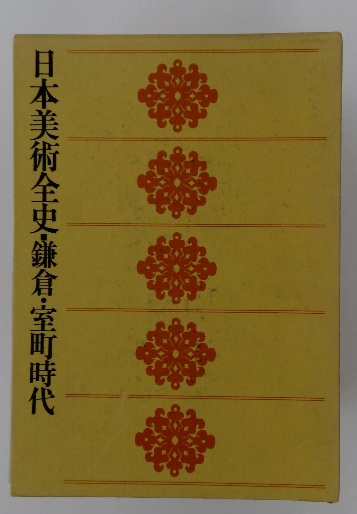 日本美術全史・鎌倉・室町時代